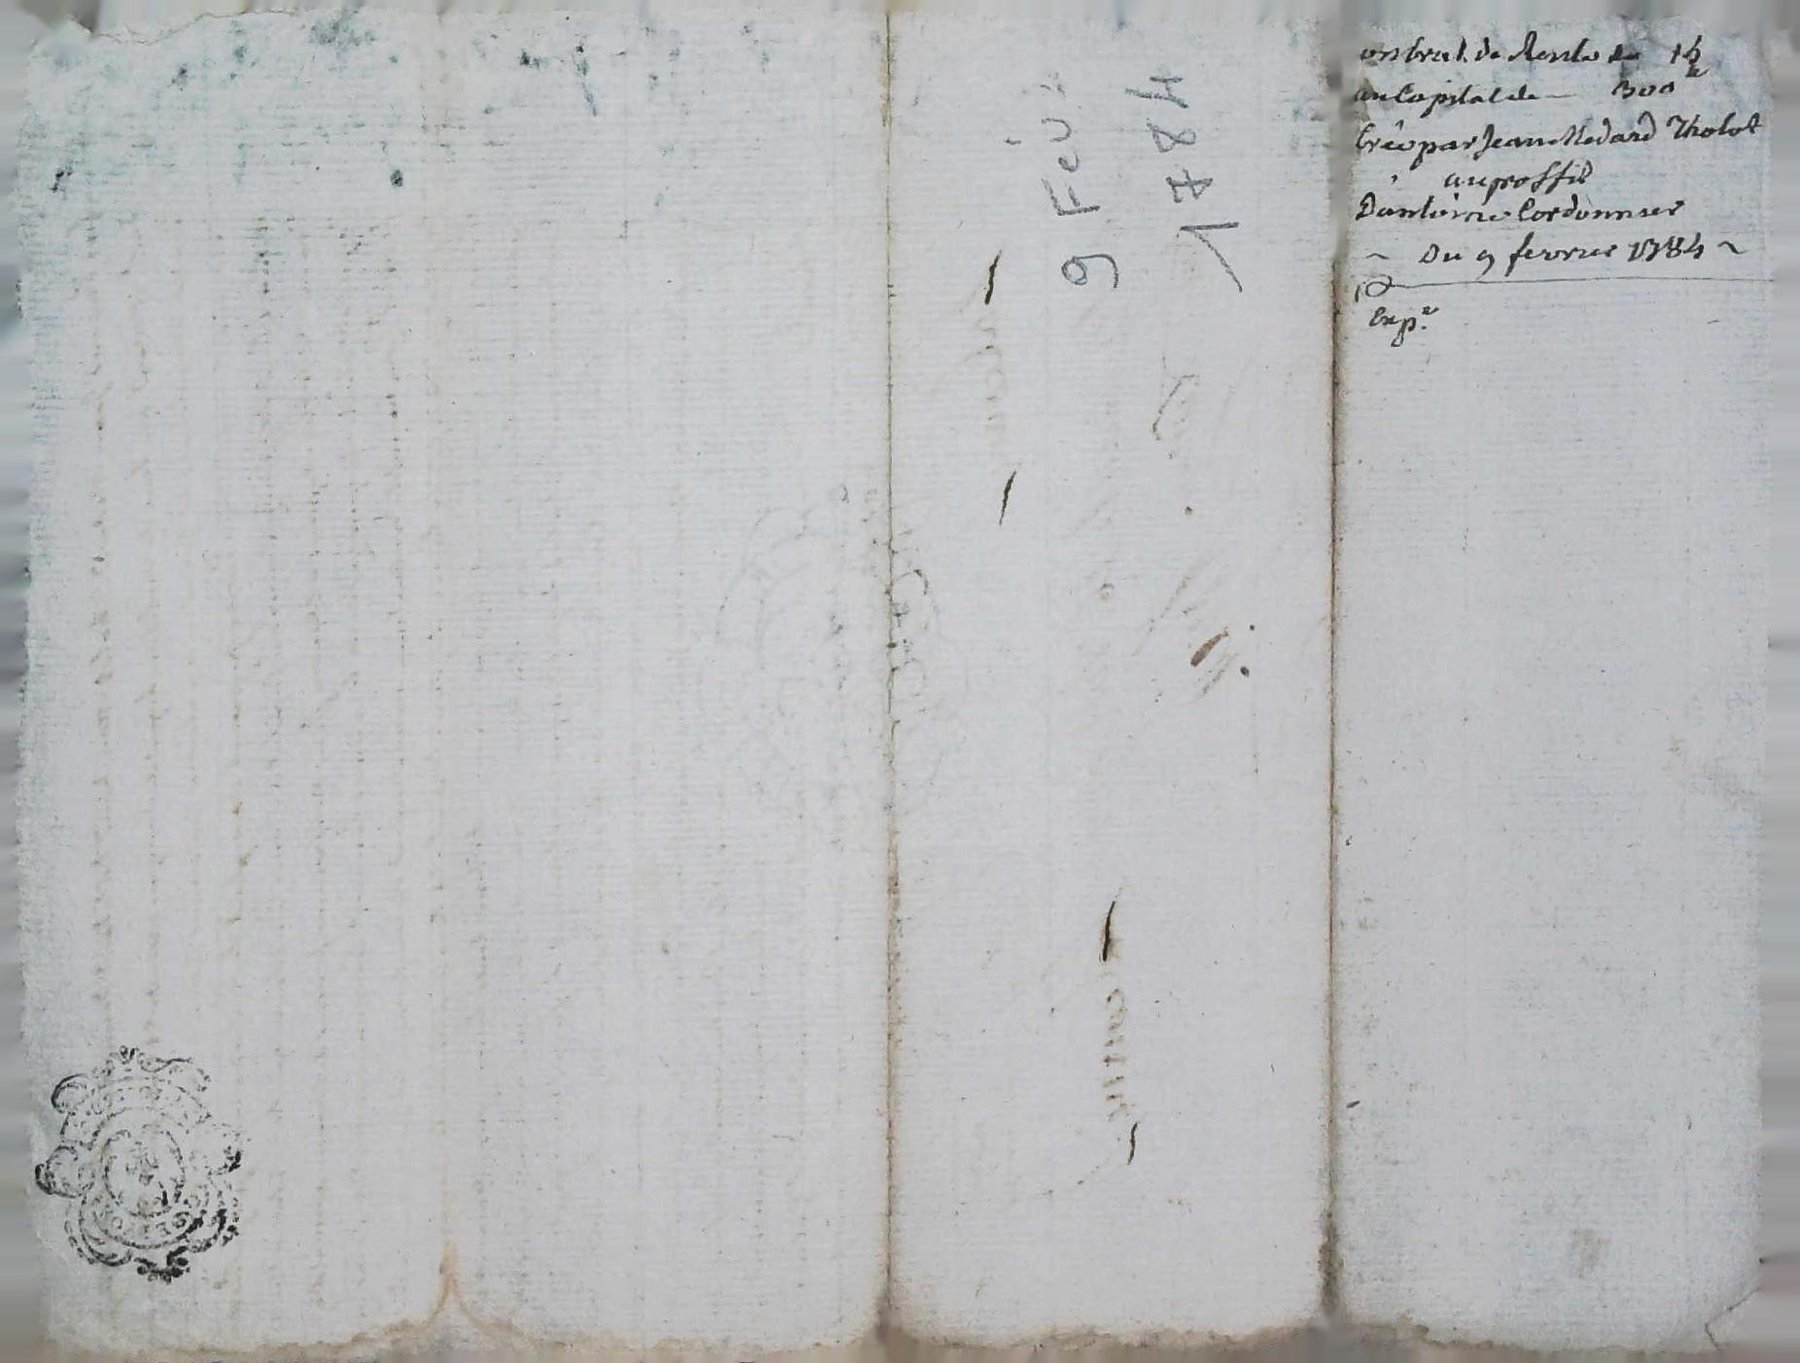 9 Fév.
1784
ontrat de Rente de 15
au Capital de 300
Créé par Jean Medard Tholot
au proffit
D'antoine Cordonnier
~ Du 9 fevrier 1784 ~
Exp.e